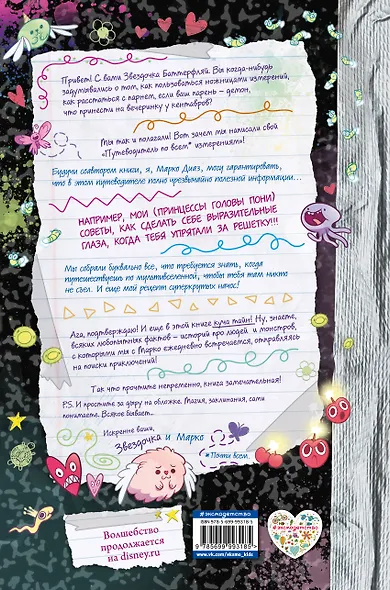 Привет! С вами Звездочка Баттерфляй. Вы когда-нибудь
задумывались о том, как пользоваться ножницами измерений,
как расстаться с парнем, если ваш парень – демон,
что принести на вечеринку у кентавров?
Мы так и полагали! Вот зачем мы написали свой
«Путеводитель по всем* измерениям»!
Будучи соавтором книги, я, Марко Диаз, могу гарантировать,
что в этом путеводителе полно чрезвычайно полезной информации...
НАПРИМЕР, МОИ (ПРИНЦЕССЫ ГОЛОВЫ ПОНИ)
СОВЕТЫ, КАК СДЕЛАТЬ СЕБЕ ВЫРАЗИТЕЛЬНЫЕ
ГЛАЗА, КОГДА ТЕБЯ УПРЯТАЛИ ЗА РЕШЕТКУ!!!
Мы собрали буквально все, что требуется знать, когда
путешествуешь по мультивселенной, чтобы тебя там никто
не съел. И еще мой рецепт суперкрутых начос!
Ага, подтверждаю! И еще в этой книге куча тайн! Ну, знаете,
всяких любопытных фактов – историй про людей и монстров,
с которыми мы с Марко ежедневно встречаемся, отправляясь
на поиски приключений!
Так что прочтите непременно, книга замечательная!
P.S. И простите за дыру на обложке. Магия, заклинания, сами
понимаете. Всякое бывает...
Искренне ваши,
Звездочка и Марко
*Почти всем.
Волшебство
продолжается
на disney.ru
#эксмодетство
ISBN 978-5-699-99318-5
9 785699 993185
www.vk.com/eksmo_kids
#эксмодетство